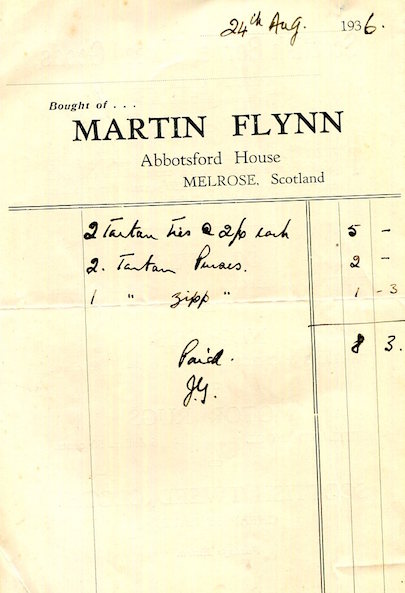 24th Aug. 1936.
Bought of . . .
MARTIN FLYNN
Abbotsford House
MELROSE, Scotland
2 Tartan Ties @ 2/6 each 5 -
2. Tartan Purses. 2 -
1 " zipp " 1 - 3
8 3.
Paid.
J.G.